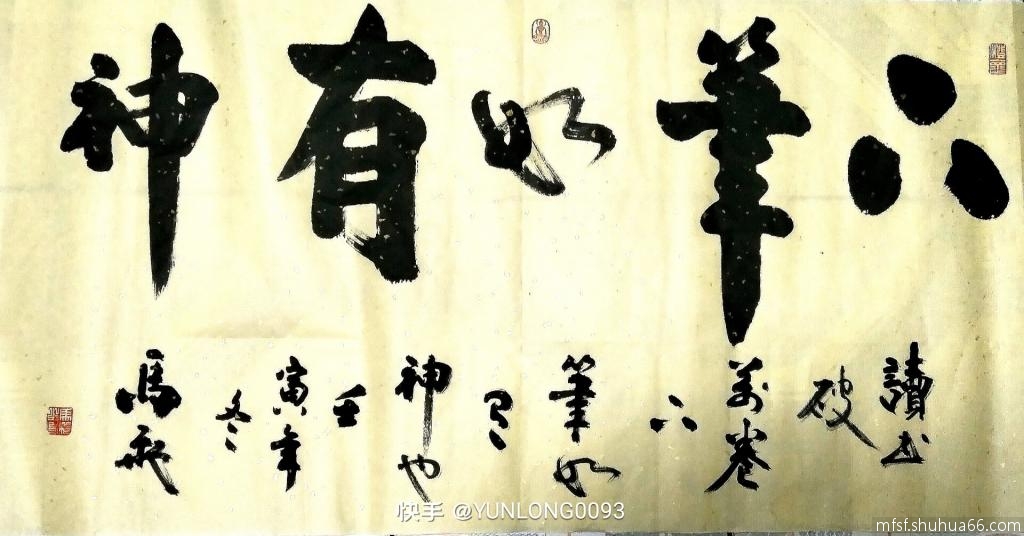 下筆如有神
讀书
破
萬卷
下
筆如
有
神也
壬
寅年
冬
馬
快手 @YUNLONG0093
mfsf.shuhua66.com